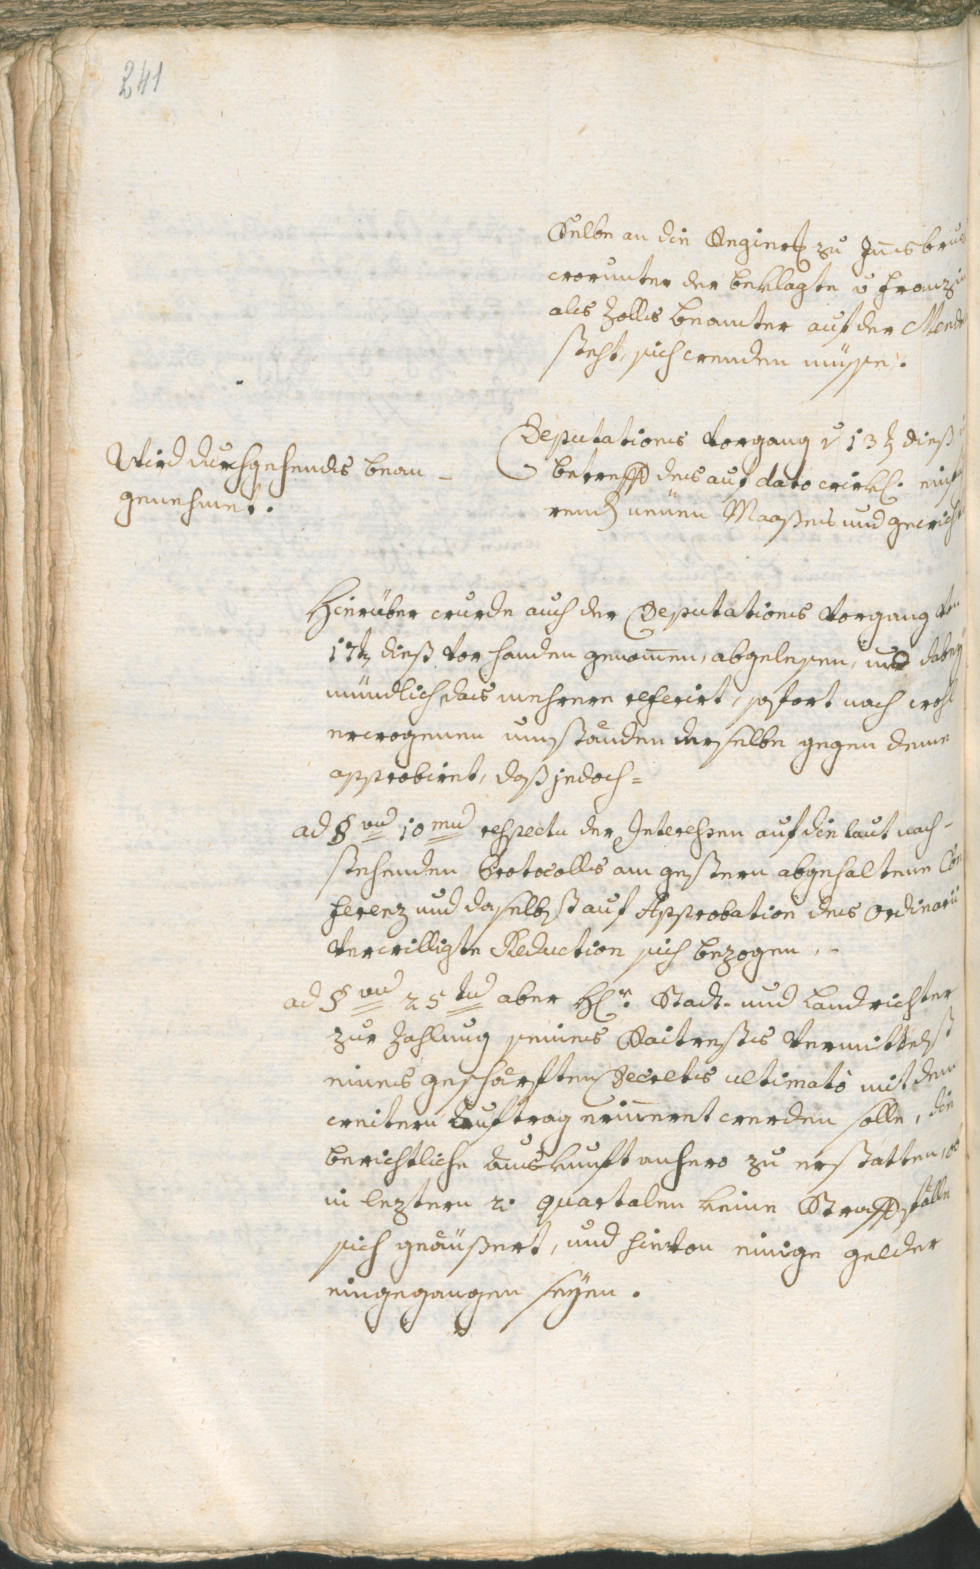 241
Selbe an die Regierg zu Jnnsbrug
worunter der beklagte v Franzin
als Zolls beamter auf der Mendl
steht, sich wenden müsse.
Wird durchgehends bean-
genehmet.
Deputations Vorgang v 13t dieß
betreff des auf dato
neuen Maaßes und gewicht
Hierüber wurde auch der Deputations Vorgang von
13t dieß vor handen genommen, abgelesen, und dabey
mündlich das mehrere referirt, sofort nach wohl
erwogenen umständen derselbe gegen deme
approbiret, daß jedoch=
ad §vum 10mum respectu der Interessen auf die laut nach-
stehenden Protocolls am gestern abgehaltene Con
ferenz und daselbst auf Approbation des Ordinarii
verwilligte Reduction sich bezogen,-
ad §vum 25tum aber Hr. Stadt- und Landrichter
zur Zahlung seines Raitrests vermittelst
eines geschärften Decrets ultimatò mit dem
weitern Auftrag erinnert werden solle, die
berichtliche auskunft anhero zu erstatten, ob
in leztern 2. quartalen keine Straffälle
sich geäußert, und hievon einige gelder
eingegangen seyen.